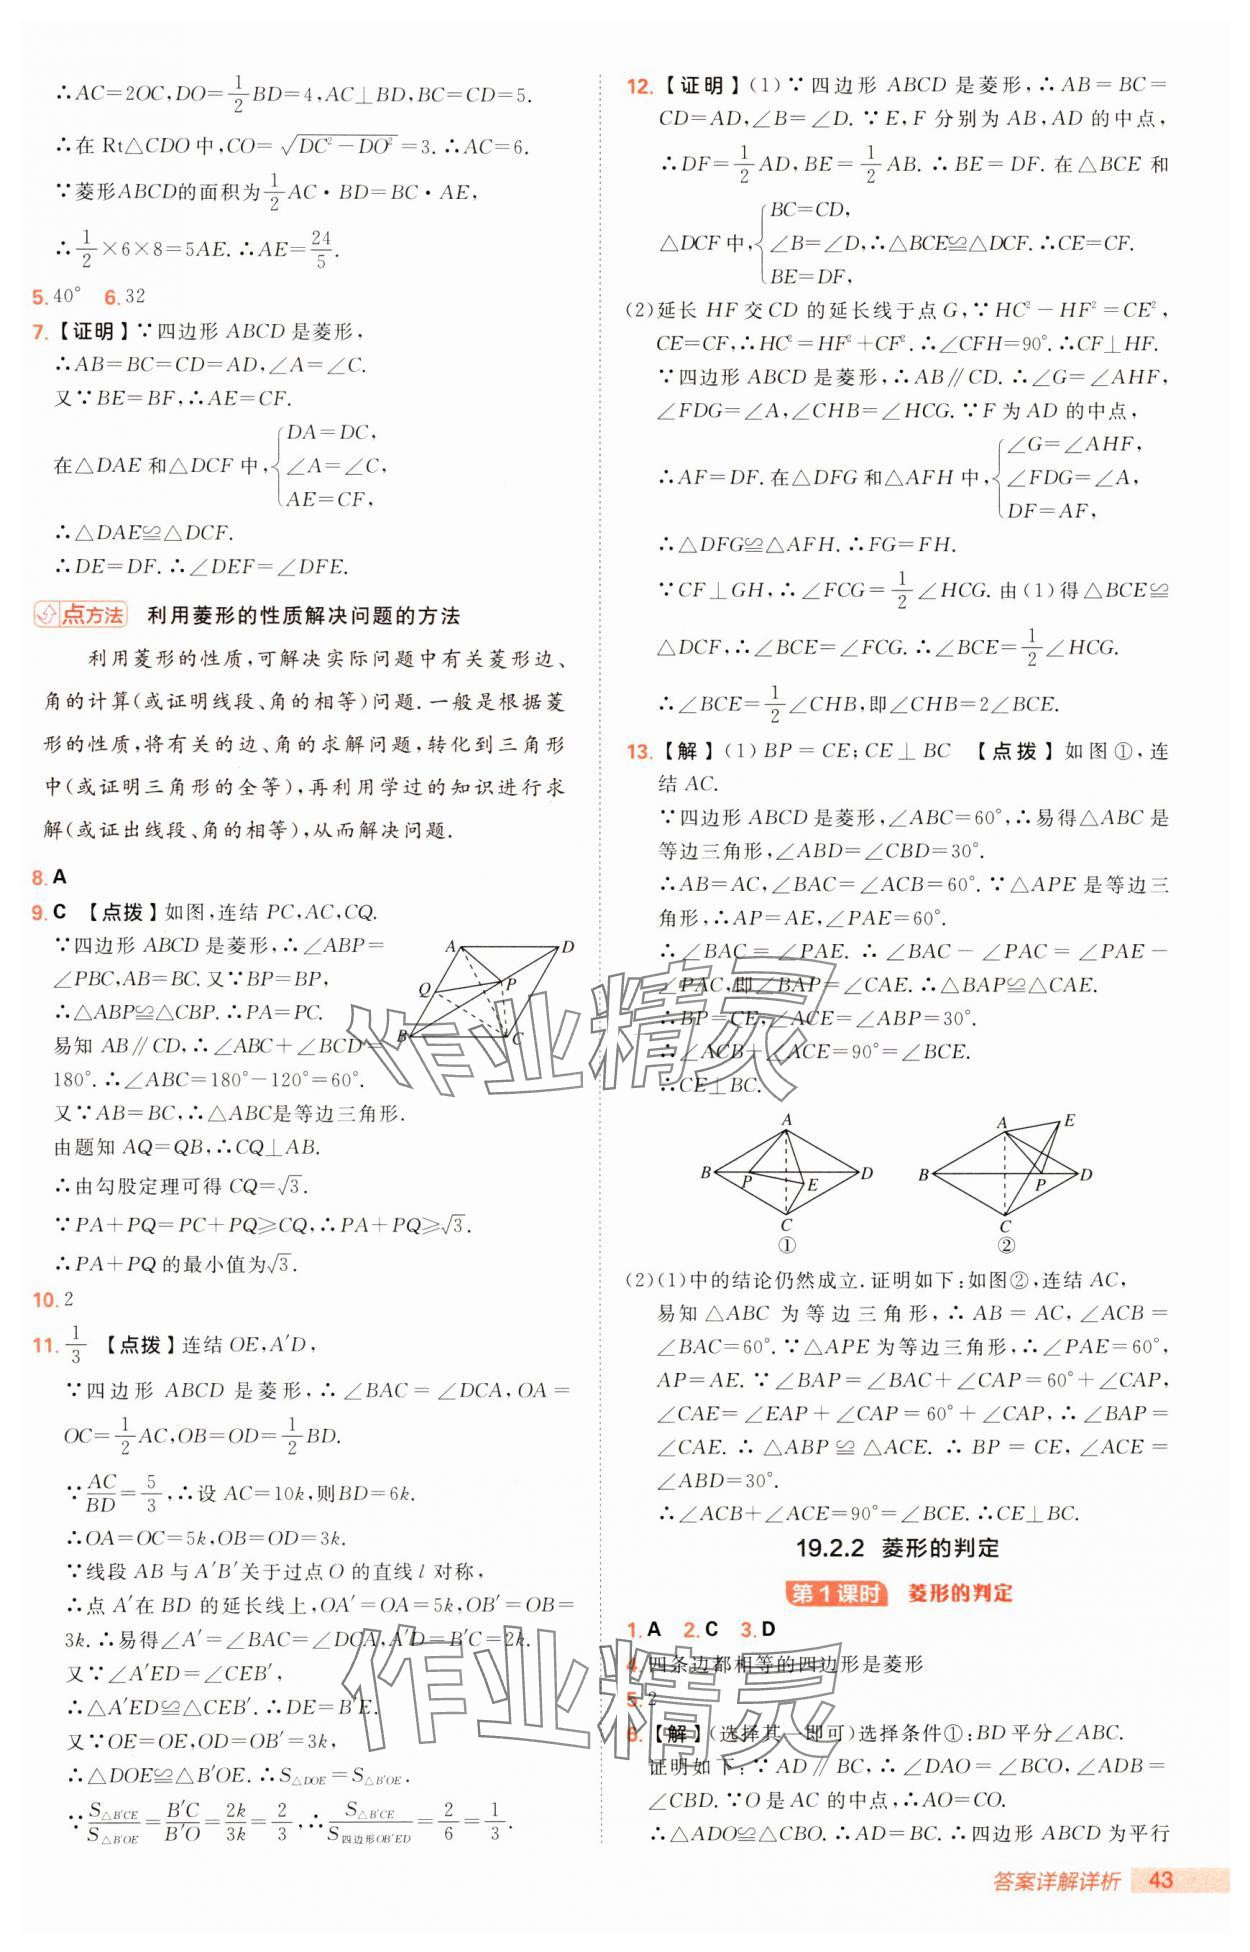 ∴AC=2OC,DO=1/2BD=4,AC⊥BD,BC=CD=5.
∴在 Rt△CDO 中,CO=√(DC²-DO²)=3.∴AC=6.
∵菱形ABCD的面积为1/2AC·BD=BC·AE,
∴1/2×6×8=5AE.∴AE=24/5.
5.40° 6.32
7.【证明】∵四边形 ABCD 是菱形,
∴AB=BC=CD=AD,∠A=∠C.
又∵BE=BF,∴AE=CF.
在△DAE 和△DCF 中,{DA=DC,
∠A=∠C,
AE=CF,
∴△DAE≌△DCF.
∴DE=DF.∴∠DEF=∠DFE.
点方法 利用菱形的性质解决问题的方法
利用菱形的性质,可解决实际问题中有关菱形边、
角的计算(或证明线段、角的相等)问题.一般是根据菱
形的性质,将有关的边、角的求解问题,转化到三角形
中(或证明三角形的全等),再利用学过的知识进行求
解(或证出线段、角的相等),从而解决问题.
8.A
9.C 【点拨】如图,连结 PC,AC,CQ.
∵四边形 ABCD 是菱形,∴∠ABP=
∠PBC,AB=BC.又∵BP=BP,
∴△ABP≌△CBP.∴PA=PC.
易知 AB∥CD,∴∠ABC+∠BCD=
180°.∴∠ABC=180°-120°=60°.
又∵AB=BC,∴△ABC是等边三角形.
由题知 AQ=QB,∴CQ⊥AB.
∴由勾股定理可得 CQ=√3.
∵PA+PQ=PC+PQ≥CQ,∴PA+PQ≥√3.
∴PA+PQ 的最小值为√3.
A D
Q P
B C
10.2
11.1/3 【点拨】连结 OE,A'D,
∵四边形 ABCD 是菱形,∴∠BAC=∠DCA,OA=
OC=1/2AC,OB=OD=1/2BD.
∵AC/BD=5/3,∴设 AC=10k,则BD=6k.
∴OA=OC=5k,OB=OD=3k.
∵线段 AB 与 A'B'关于过点 O 的直线 l 对称,
∴点 A'在 BD 的延长线上,OA'=OA=5k,OB'=OB=
3k.∴易得∠A'=∠BAC=∠DCA,A'D=B'C=2k.
又∵∠A'ED=∠CEB',
∴△A'ED≌△CEB'.∴DE=B'E.
又∵OE=OE,OD=OB'=3k,
∴△DOE≌△B'OE.∴S△DOE=S△B'OE.
∵S△B'CE/S△B'OE=B'C/B'O=2k/3k=2/3,∴S△B'CE/S四边形OB'ED=2/6=1/3.
12.【证明】(1)∵四边形 ABCD 是菱形,∴AB=BC=
CD=AD,∠B=∠D.∵E,F 分别为 AB,AD 的中点,
∴DF=1/2AD,BE=1/2AB.∴BE=DF.在△BCE 和
△DCF 中,{BC=CD,
∠B=∠D,∴△BCE≌△DCF.∴CE=CF.
BE=DF,
(2)延长 HF 交 CD 的延长线于点 G,∵HC²-HF²=CE²,
CE=CF,∴HC²=HF²+CF².∴∠CFH=90°.∴CF⊥HF.
∵四边形 ABCD 是菱形,∴AB∥CD.∴∠G=∠AHF,
∠FDG=∠A,∠CHB=∠HCG.∵F 为 AD 的中点,
∴AF=DF.在△DFG 和△AFH 中,{∠G=∠AHF,
∠FDG=∠A,
DF=AF,
∴△DFG≌△AFH.∴FG=FH.
∵CF⊥GH,∴∠FCG=1/2∠HCG.由(1)得△BCE≌
△DCF,∴∠BCE=∠FCG.∴∠BCE=1/2∠HCG.
∴∠BCE=1/2∠CHB,即∠CHB=2∠BCE.
13.【解】(1)BP=CE;CE⊥BC 【点拨】如图①,连
结 AC.
∵四边形 ABCD 是菱形,∠ABC=60°,∴易得△ABC 是
等边三角形,∠ABD=∠CBD=30°.
∴AB=AC,∠BAC=∠ACB=60°.∵△APE 是等边三
角形,∴AP=AE,∠PAE=60°.
∴∠BAC=∠PAE.∴∠BAC-∠PAC=∠PAE-
∠PAC,即∠BAP=∠CAE.∴△BAP≌△CAE.
∴BP=CE,∠ACE=∠ABP=30°.
∴∠ACB+∠ACE=90°=∠BCE.
∴CE⊥BC.
A
B P E D
C
①
A E
B P D
C
②
(2)(1)中的结论仍然成立.证明如下:如图②,连结 AC,
易知△ABC 为等边三角形,∴AB=AC,∠ACB=
∠BAC=60°.∵△APE 为等边三角形,∴∠PAE=60°,
AP=AE.∵∠BAP=∠BAC+∠CAP=60°+∠CAP,
∠CAE=∠EAP+∠CAP=60°+∠CAP,∴∠BAP=
∠CAE.∴△ABP≌△ACE.∴BP=CE,∠ACE=
∠ABD=30°.
∴∠ACB+∠ACE=90°=∠BCE.∴CE⊥BC.
19.2.2 菱形的判定
第1课时 菱形的判定
1.A 2.C 3.D
4.四条边都相等的四边形是菱形
5.2
6.【解】(选择其一即可)选择条件①:BD 平分∠ABC.
证明如下:∵AD∥BC,∴∠DAO=∠BCO,∠ADB=
∠CBD.∵O是 AC 的中点,∴AO=CO.
∴△ADO≌△CBO.∴AD=BC.∴四边形 ABCD 为平行
答案详解详析 43
作业精灵
作业精灵